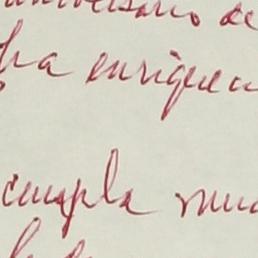 aniversario de
ha enrique
cumpla mu